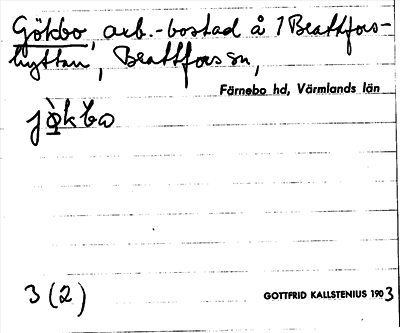 Gökbo, arb.-bostad å 1 Brattfors-
hyttan, Brattfors sn,
Färnebo hd, Värmlands län
jö̀kbo
3 (2)
GOTTFRID KALLSTENIUS 1903